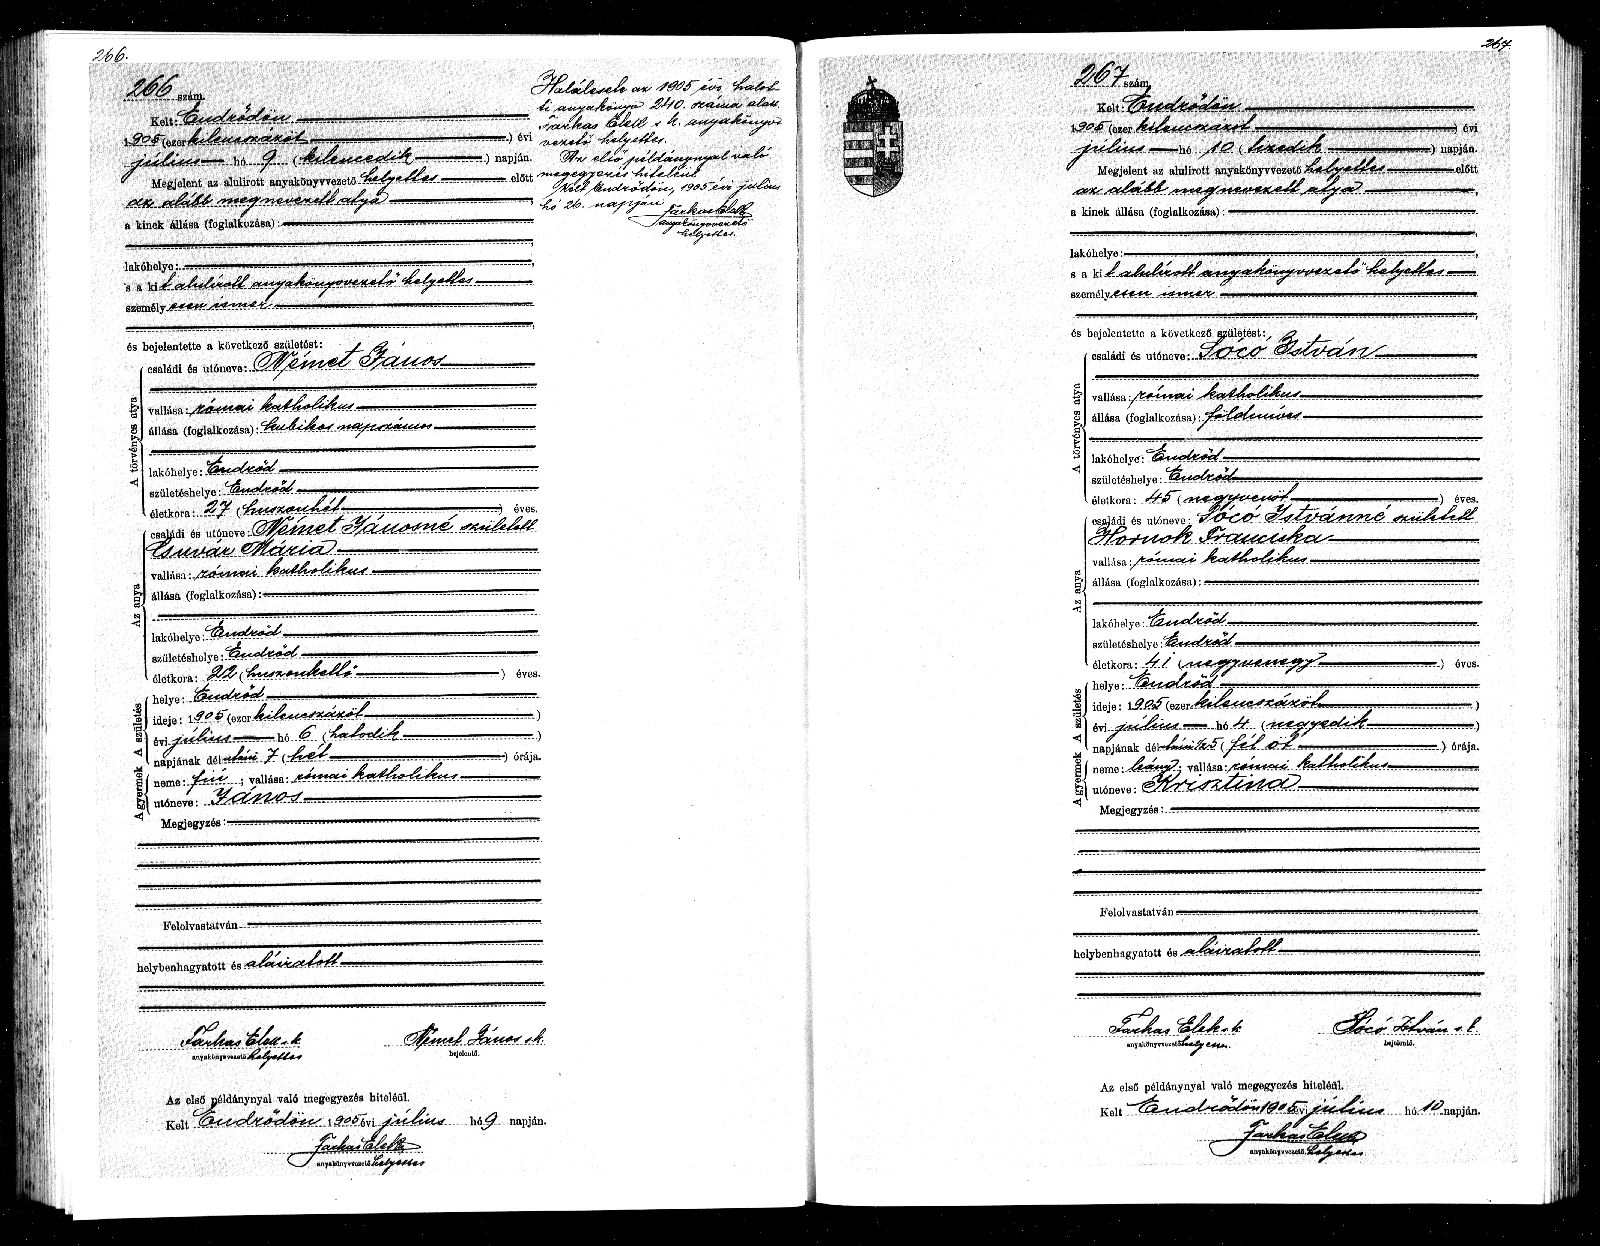 266.
266 szám.
Kelt: Endrődön
1905 (ezer kilenczszázöt) évi
július hó 9 (kilenczedik) napján.
Megjelent az alulirott anyakönyvvezető helyettes előtt
az alább megnevezett atya,
a kinek állása (foglalkozása):
lakóhelye:
s a kit alulirott anyakönyvvezető helyettes
személyesen ismer
és bejelentette a következő születést:
A törvényes atya
családi és utóneve: Német János
vallása: római katholikus
állása (foglalkozása): kubikos napszámos
lakóhelye: Endrőd
születéshelye: Endrőd
életkora: 27 (huszonhét) éves.
Az anya
családi és utóneve: Német Jánosné született
Csuvár Mária
vallása: római katholikus
állása (foglalkozása):
lakóhelye: Endrőd
születéshelye: Endrőd
életkora: 22 (huszonkettő) éves.
A születés
helye: Endrőd
ideje: 1905 (ezer kilenczszázöt)
évi július hó 6 (hatodik)
napjának délutáni 7 (hét) órája.
A gyermek
neme: fiú; vallása: római katholikus
utóneve: János
Megjegyzés:
Felolvastatván
helybenhagyatott és aláiratott
Farkas Elek s. k. Német János s. k.
anyakönyvvezető helyettes bejelentő.
Az első példánynyal való megegyezés hiteléül.
Kelt Endrődön 1905 évi július hó 9 napján.
Farkas Elek
anyakönyvvezető helyettes
Haláleset az 1905 évi halot-
ti anyakönyv 240. száma alatt.
Farkas Elek s. k. anyakönyv-
vezető helyettes.
Az első példánynyal való
megegyezés hiteléül
Kelt Endrődön, 1905 évi július
hó 26. napján
Farkas Elek
anyakönyvvezető
helyettes.
267.
267 szám.
Kelt: Endrődön
1905 (ezer kilenczszázöt) évi
július hó 10 (tizedik) napján.
Megjelent az alulirott anyakönyvvezető helyettes előtt
az alább megnevezett atya,
a kinek állása (foglalkozása):
lakóhelye:
s a kit alulírott anyakönyvvezető helyettes
személyesen ismer
és bejelentette a következő születést:
A törvényes atya
családi és utóneve: Sócó István
vallása: római katholikus
állása (foglalkozása): földmíves
lakóhelye: Endrőd
születéshelye: Endrőd
életkora: 45 (negyvenöt) éves.
Az anya
családi és utóneve: Sócó Istvánné született
Hornok Franciska
vallása: római katholikus
állása (foglalkozása):
lakóhelye: Endrőd
születéshelye: Endrőd
életkora: 41 (negyvenegy) éves.
A születés
helye: Endrőd
ideje: 1905 (ezer kilenczszázöt)
évi július hó 4 (negyedik)
napjának délutáni ½5 (fél öt) órája.
A gyermek
neme: leány; vallása: római katholikus
utóneve: Krisztina
Megjegyzés:
Felolvastatván
helybenhagyatott és aláiratott
Farkas Elek s. k. Sócó István s. k.
anyakönyvvezető helyettes. bejelentő.
Az első példánynyal való megegyezés hiteléül.
Kelt Endrődön 1905 évi július hó 10 napján.
Farkas Elek
anyakönyvvezető helyettes